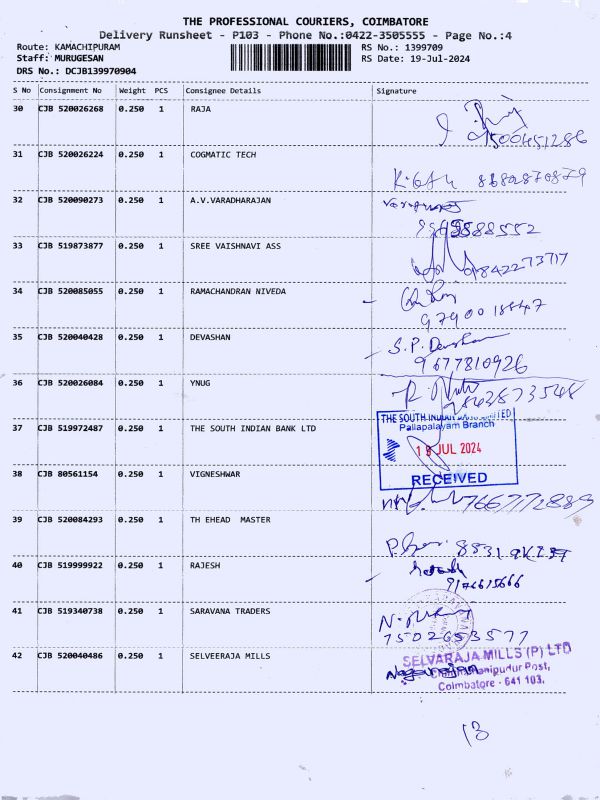 THE PROFESSIONAL COURIERS, COIMBATORE
Delivery Runsheet - P103 - Phone No.:0422-3505555 - Page No.:4
Route: KAMACHIPURAM RS No.: 1399709
Staff: MURUGESAN RS Date: 19-Jul-2024
DRS No.: DCJB139970904
S No Consignment No Weight PCS Consignee Details Signature
30 CJB 520026268 0.250 1 RAJA
31 CJB 520026224 0.250 1 COGMATIC TECH
32 CJB 520090273 0.250 1 A.V.VARADHARAJAN
33 CJB 519873877 0.250 1 SREE VAISHNAVI ASS
9842273717
34 CJB 520085055 0.250 1 RAMACHANDRAN NIVEDA
35 CJB 520040428 0.250 1 DEVASHAN S.P. Devashan
9677810926
36 CJB 520026084 0.250 1 YNUG
9843873548
37 CJB 519972487 0.250 1 THE SOUTH INDIAN BANK LTD
THE SOUTH INDIAN BANK LIMITED
Pallapalayam Branch
19 JUL 2024
RECEIVED
38 CJB 80561154 0.250 1 VIGNESHWAR
7667712889
39 CJB 520084293 0.250 1 TH EHEAD MASTER
40 CJB 519999922 0.250 1 RAJESH
9176615666
41 CJB 519340738 0.250 1 SARAVANA TRADERS
7502653577
42 CJB 520040486 0.250 1 SELVEERAJA MILLS
SELVARAJA MILLS (P) LTD
Nagarajan
Post,
Coimbatore - 641 103.
13